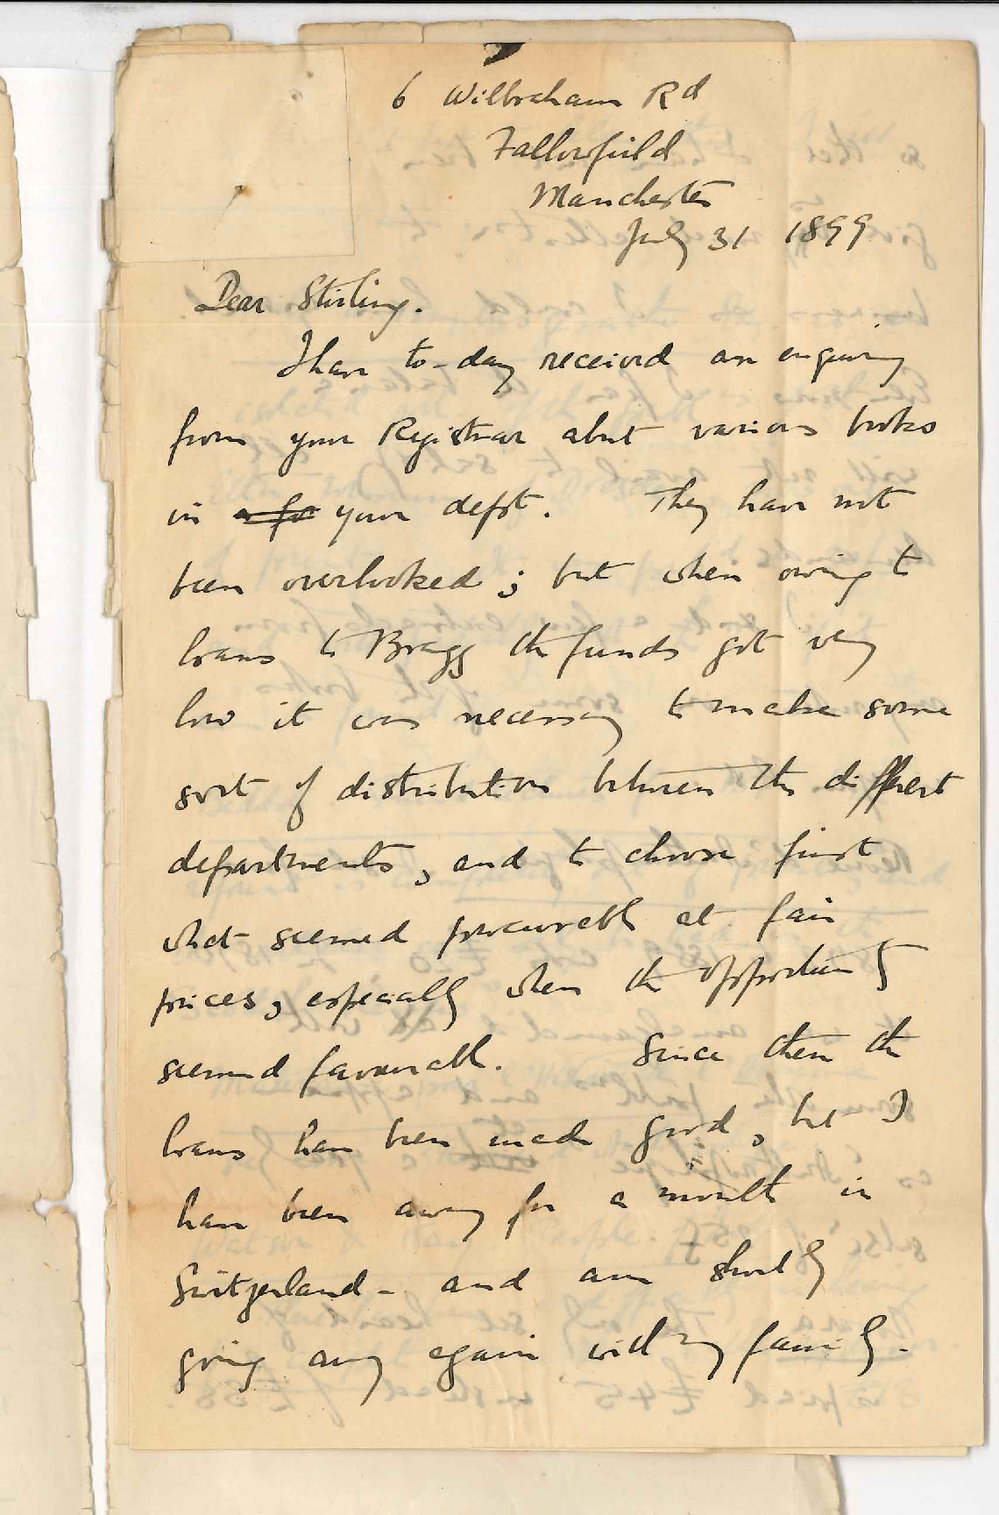 6 Wilbraham Rd
Fallowfield
Manchester
July 31 1899
Dear Stirling.
I have to-day received an enquiry
from your Registrar about various books
in your dept. They have not
been overlooked; but when owing to
loans to Bragg the funds got very
low it was necessary to make some
sort of distribution between the different
departments, and to choose first
what seemed procurable at fair
prices, especially when the opportunity
seemed favourable. Since then the
loans have been made good, but I
have been away for a month in
Switzerland - and am shortly
going away again with my family.